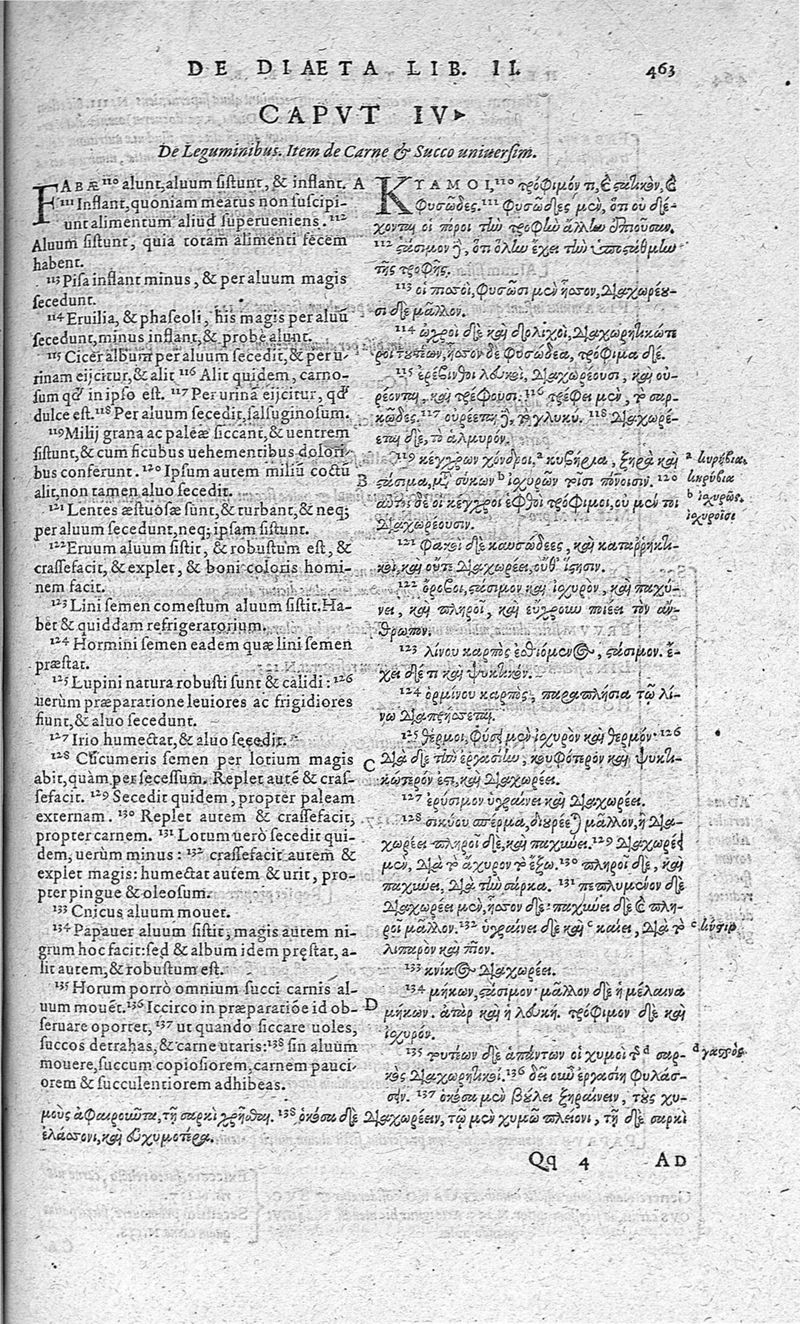 DE DIAETA LIB. II. 463
CAPVT IV
De Leguminibus. Item de Carne & Succo uniuersim.
FABÆ ¹¹⁰ alunt, aluum sistunt, & inflant. A
¹¹¹ Inflant, quoniam meatus non suscipi-
unt alimentum aliud superueniens. ¹¹²
Aluum sistunt, quia totam alimenti fecem
habent.
¹¹³ Pisa inflant minus, & per aluum magis
secedunt.
¹¹⁴ Eruilia, & phaseoli, his magis per aluū
secedunt, minus inflant, & probè alunt.
¹¹⁵ Cicer album per aluum secedit, & per u-
rinam eijcitur, & alit ¹¹⁶ Alit quidem, carno-
sum qđ in ipso est. ¹¹⁷ Per urinā eijcitur, qđ
dulce est. ¹¹⁸ Per aluum secedit, salsuginosum.
¹¹⁹ Milij grana ac paleæ siccant, & uentrem
sistunt, & cum ficubus uehementibus dolori-
bus conferunt. ¹²⁰ Ipsum autem miliū coctū B
alit, non tamen aluo secedit.
¹²¹ Lentes æstuosæ sunt, & turbant, & neq;
per aluum secedunt, neq; ipsam sistunt.
¹²² Eruum aluum sistit, & robustum est, &
crassefacit, & explet, & boni coloris homi-
nem facit.
¹²³ Lini semen comestum aluum sistit. Ha-
bet & quiddam refrigeratorium.
¹²⁴ Hormini semen eadem quæ lini semen
præstat.
¹²⁵ Lupini natura robusti sunt & calidi: ¹²⁶
uerùm præparatione leuiores ac frigidiores
fiunt, & aluo secedunt.
¹²⁷ Irio humectat, & aluo secedit.
¹²⁸ Cucumeris semen per lotium magis C
abit, quàm per secessum. Replet autē & cras-
sefacit. ¹²⁹ Secedit quidem, propter paleam
externam. ¹³⁰ Replet autem & crassefacit,
propter carnem. ¹³¹ Lotum uerò secedit qui-
dem, uerùm minus: ¹³² crassefacit autem &
explet magis: humectat autem & urit, pro-
pter pingue & oleosum.
¹³³ Cnicus aluum mouet.
¹³⁴ Papauer aluum sistit, magis autem ni-
grum hoc facit: sed & album idem pręstat, a-
lit autem, & robustum est.
¹³⁵ Horum porrò omnium succi carnis al-
uum mouēt. ¹³⁶ Iccirco in præparatiōe id ob- D
seruare oportet, ¹³⁷ ut quando siccare uoles,
succos detrahas, & carne utaris: ¹³⁸ sin aluum
mouere, succum copiosiorem, carnem pauci-
orem & succulentiorem adhibeas.
ΚΥΑΜΟΙ, ¹¹⁰ τρόφιμόν τι, ϗ στατικὸν, ϗ
φυσῶδες. ¹¹¹ φυσῶδες μὲν, ὅτι οὐ δέ-
χονται οἱ πόροι τὴν τροφὴν ἄλλην ἐπιοῦσαν.
¹¹² στάσιμον δὲ, ὅτι ὅλην ἔχει τὴν ὑποστάθμην
τῆς τροφῆς.
¹¹³ οἱ πισοὶ, φυσῶσι μὲν ἧσσον, διαχωρέου-
σι δὲ μᾶλλον.
¹¹⁴ ὦχροι δὲ καὶ δόλιχοι, διαχωρητικώτε
ροι τουτέων, ἧσσον δε φυσώδεα, τρόφιμα δέ.
¹¹⁵ ἐρέβινθοι λευκοὶ, διαχωρέουσι, καὶ οὐ-
ρέονται, καὶ τρέφουσι. ¹¹⁶ τρέφει μὲν, τὸ σαρ-
κῶδες. ¹¹⁷ οὐρέεται δὲ, τὸ γλυκύ. ¹¹⁸ διαχωρέ-
εται δὲ, τὸ ἁλμυρόν.
¹¹⁹ κέγχρων χόνδροι, ᵃ κυβήρια, ξηρὰ καὶ
στάσιμα, μετὰ σύκων ᵇ ἰσχυρῶν τοῖσι πόνοισιν. ¹²⁰
αὐτοὶ δὲ οἱ κέγχροι ἑφθοὶ τρόφιμοι, οὐ μὲν τοι
διαχωρέουσιν.
¹²¹ φακοὶ δὲ καυσώδεες, καὶ καταρρηκτι-
κοὶ, καὶ οὔτε διαχωρέει, οὔθ' ἵστησιν.
¹²² ὄροβοι, στάσιμον καὶ ἰσχυρὸν, καὶ παχύ-
νει, καὶ πληροῖ, καὶ εὔχρουν ποιέει τὸν ἄν-
θρωπον.
¹²³ λίνου καρπὸς ἐσθιόμενος, στάσιμον. ἔ-
χει δέ τι καὶ ψυκτικόν.
¹²⁴ ὁρμίνου καρπὸς, παραπλήσια τῷ λί-
νῳ διαπρήσσεται.
¹²⁵ θέρμοι, φύσει μὲν ἰσχυρὸν καὶ θερμόν· ¹²⁶
διὰ δὲ τὴν ἐργασίην, κουφότερον καὶ ψυκτι-
κώτερόν ἐστι, καὶ διαχωρέει.
¹²⁷ ἐρύσιμον ὑγραίνει καὶ διαχωρέει.
¹²⁸ σικύου σπέρμα, διουρέεται μᾶλλον, ἢ δια-
χωρέει· πληροῖ δὲ, καὶ παχύνει. ¹²⁹ διαχωρέει
μὲν, διὰ τὸ ἄχυρον τὸ ἔξω. ¹³⁰ πληροῖ δὲ, καὶ
παχύνει, διὰ τὴν σάρκα. ¹³¹ πεπλυμένον δὲ
διαχωρέει μὲν, ἧσσον δέ· παχύνει δὲ ϗ πλη-
ροῖ μᾶλλον. ¹³² ὑγραίνει δὲ καὶ ᶜ καίει, διὰ τὸ
λιπαρὸν καὶ πῖον.
¹³³ κνίκος διαχωρέει.
¹³⁴ μήκων, στάσιμον· μᾶλλον δὲ ἡ μέλαινα
μήκων. ἀτὰρ καὶ ἡ λευκή. τρόφιμον δὲ καὶ
ἰσχυρόν.
¹³⁵ τουτέων δὲ ἁπάντων οἱ χυμοὶ τῆς ᵈ σαρ-
κὸς διαχωρητικοί. ¹³⁶ δεῖ οὖν ἐργασίῃ φυλάσ-
σειν. ¹³⁷ ὁκόσα μὲν βούλει ξηραίνειν, τοὺς χυ-
μοὺς ἀφαιρεῦντα, τῇ σαρκὶ χρῆσθαι. ¹³⁸ ὁκόσα δὲ διαχωρέειν, τῷ μὲν χυμῷ πλείονι, τῇ δὲ σαρκὶ
ἐλάσσονι, καὶ εὐχυμοτέρᾳ.
ᵃ κυρήβια.
κηρύβια
ᵇ ἰσχυρῶς.
ἰσχυροῖσι
ᵈ γαστρὸς
Qq 4 AD